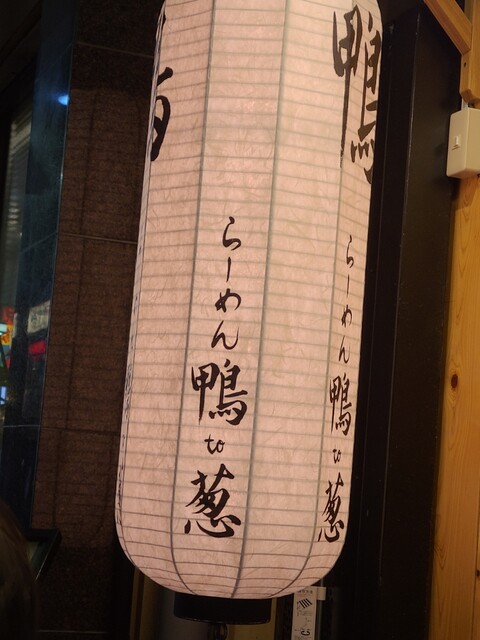 鴨
らーめん鴨to葱
らーめん鴨to葱